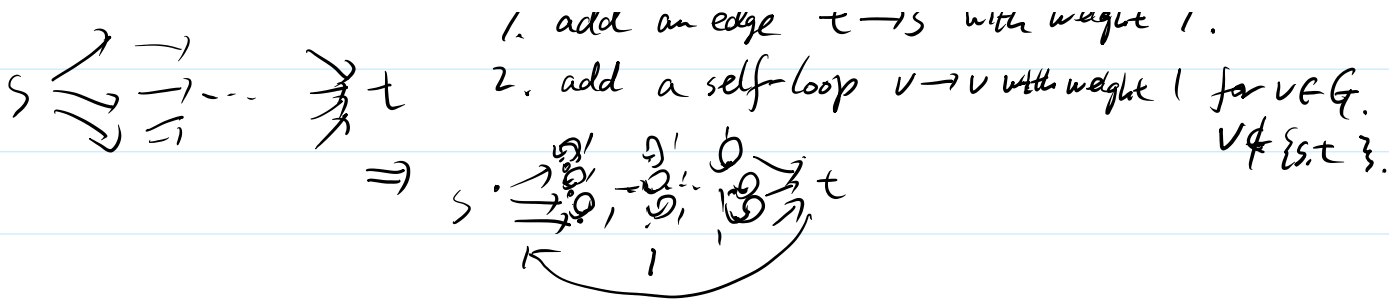 1. add an edge t→s with weight 1.
2. add a self-loop v→v with weight 1 for v∈G.
v∉{s,t}.
s t
⇒ s t
1